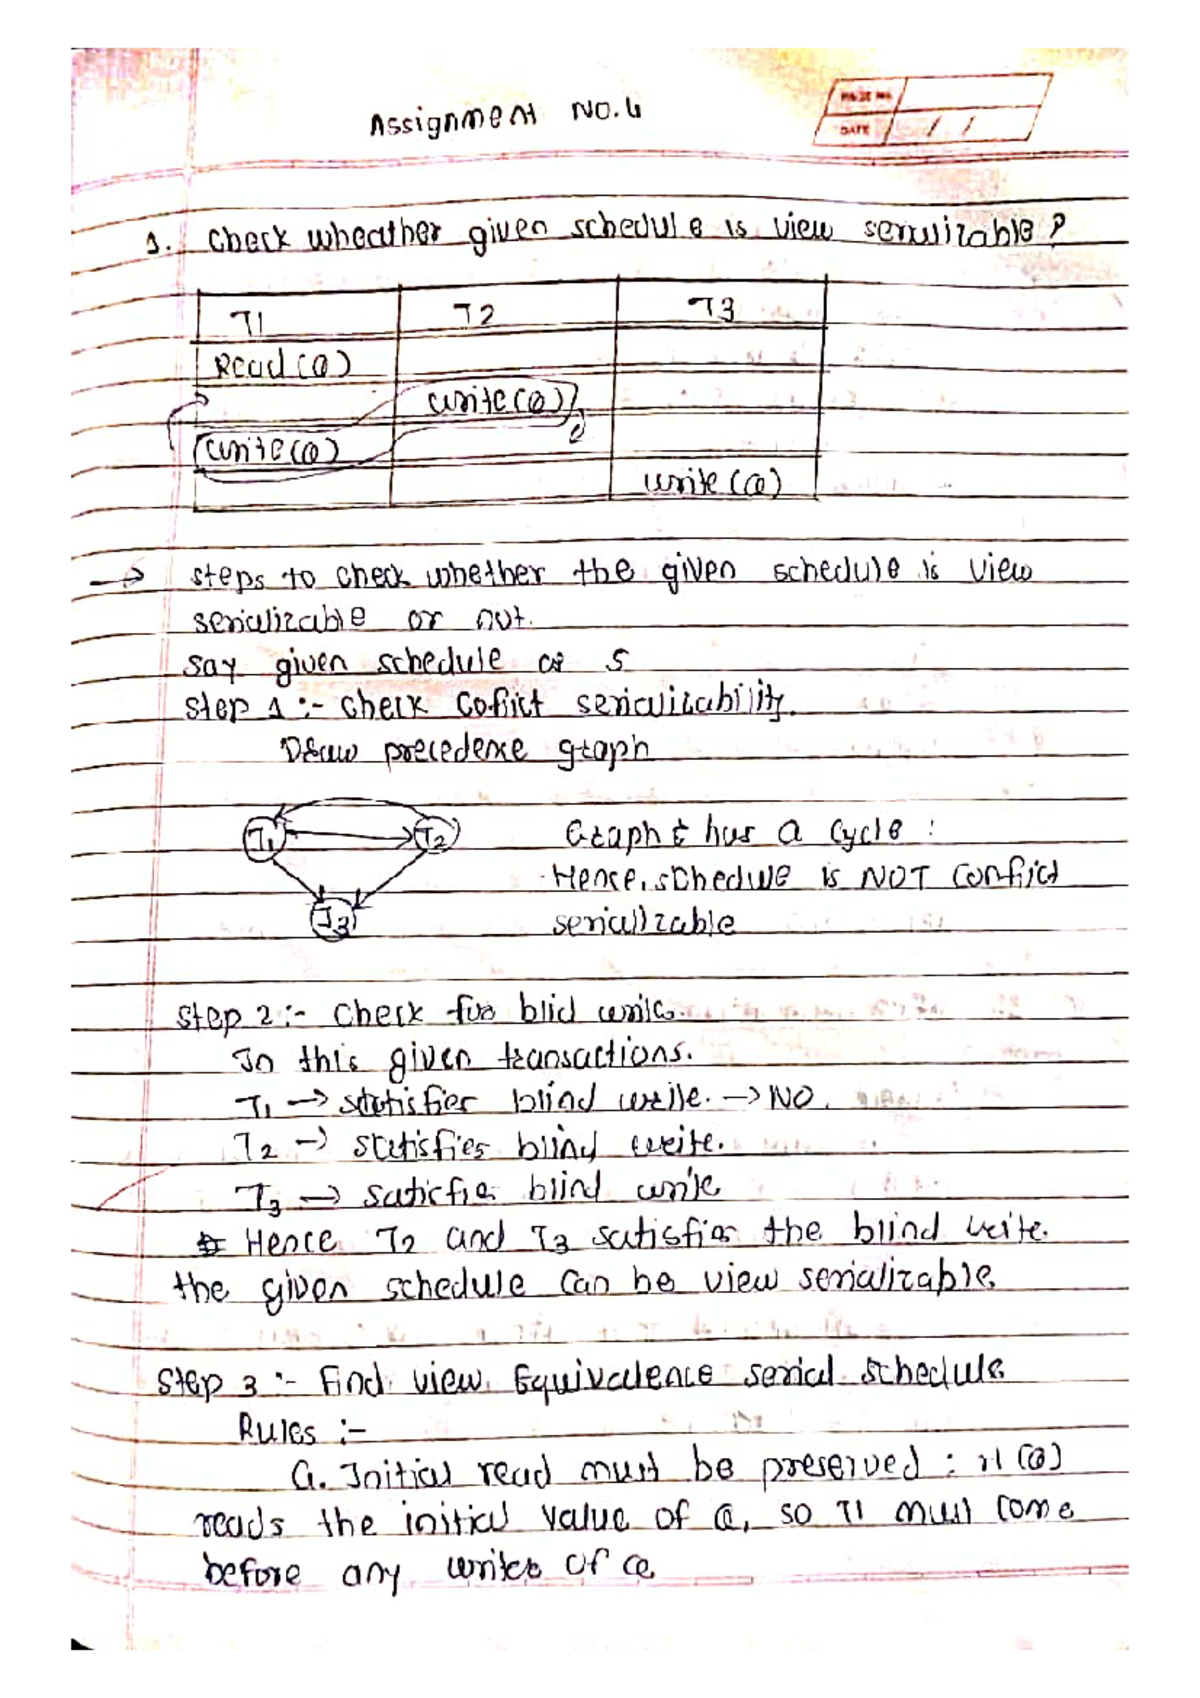 Assignment No.4
PAGE No.
DATE / /
1. Check wheather given schedule is view serializable?
T1 T2 T3
Read(Q)
write(Q)
write(Q)
write(Q)
→ steps to check whether the given schedule is view
serializable or not.
say given schedule as S
step 1 :- check Coflict serializability.
Draw precedence graph
T1 T2
T3
Graph has a cycle :
Hence, schedule is NOT conflict
serializable
step 2 :- check for blid write.
In this given transactions.
T1 → statisfies blind write. → NO.
T2 → statisfies blind write.
T3 → satisfies blind write
Hence T2 and T3 satisfies the blind write.
the given schedule can be view serializable.
step 3 :- Find view Equivalence serial schedule.
Rules :-
a. Initial read must be preserved : r1(Q)
reads the initial value of Q, so T1 must come
before any writes of Q.